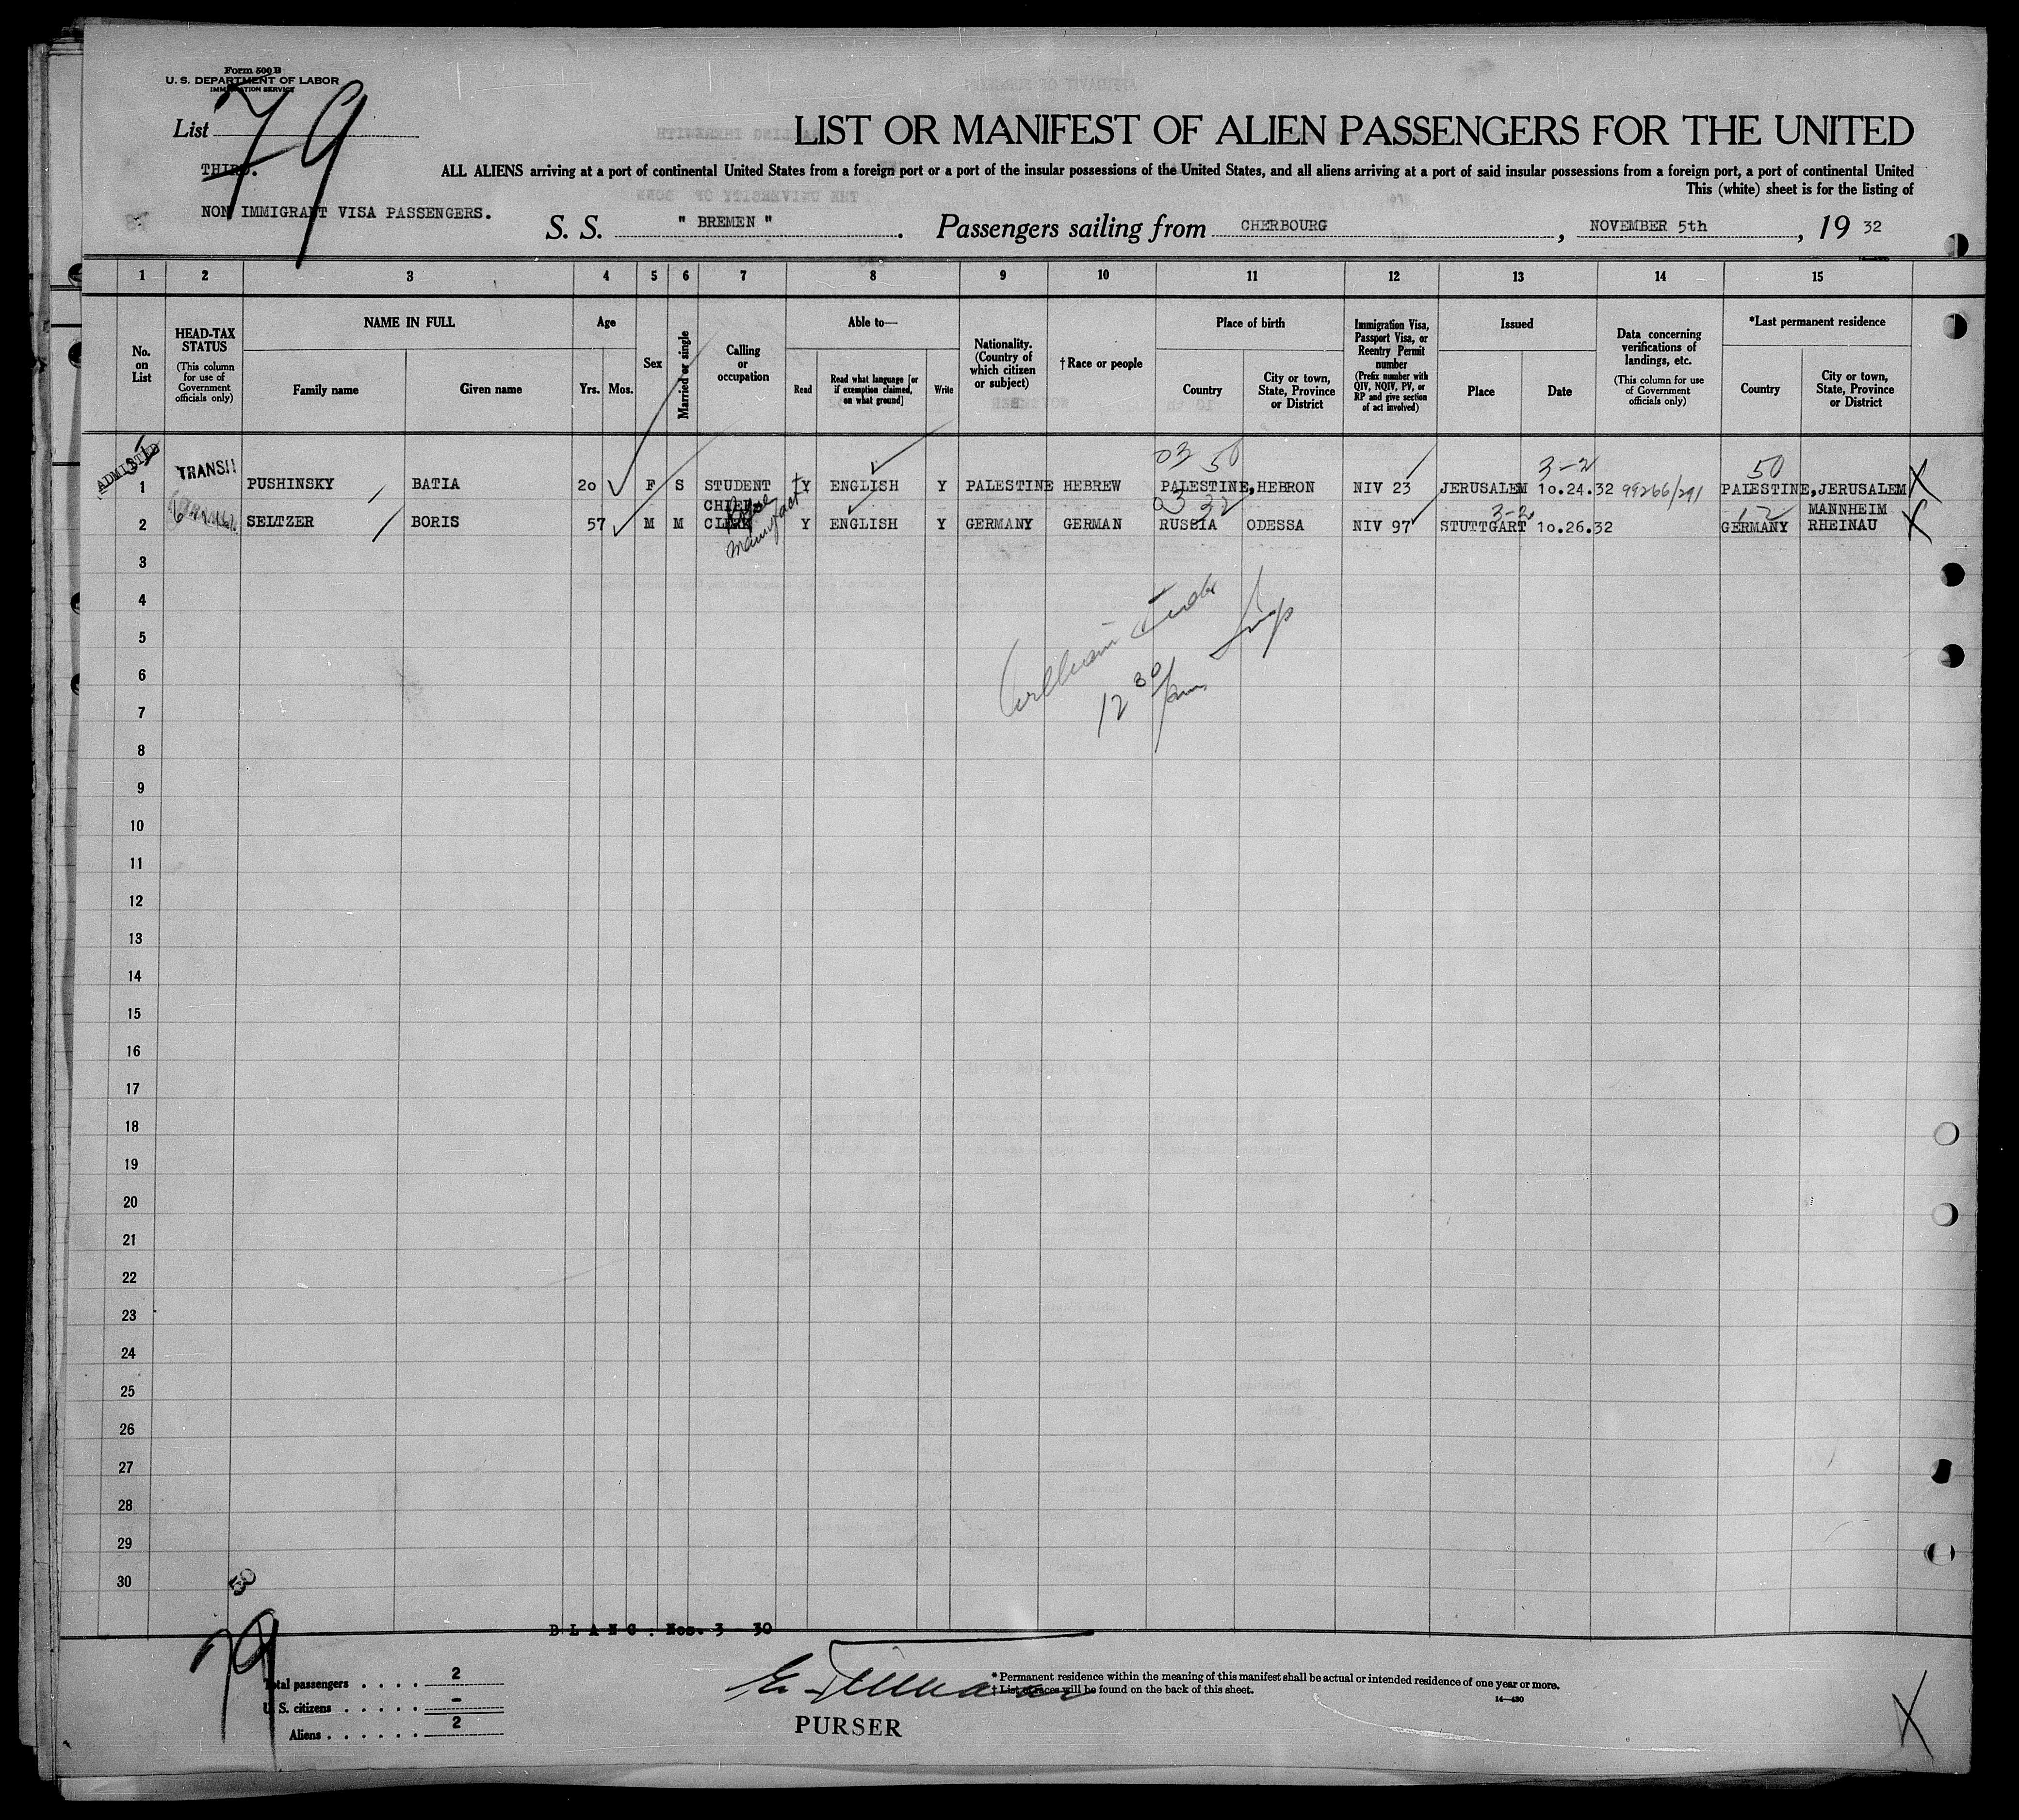 Form 500 B
U. S. DEPARTMENT OF LABOR
IMMIGRATION SERVICE
List 79
THIRD.
NON IMMIGRANT VISA PASSENGERS.
LIST OR MANIFEST OF ALIEN PASSENGERS FOR THE UNITED
ALL ALIENS arriving at a port of continental United States from a foreign port or a port of the insular possessions of the United States, and all aliens arriving at a port of said insular possessions from a foreign port, a port of continental United
This (white) sheet is for the listing of
S. S. " BREMEN " . Passengers sailing from CHERBOURG , NOVEMBER 5th , 19 32
1 2 3 4 5 6 7 8 9 10 11 12 13 14 15
No. on List
HEAD-TAX STATUS
(This column for use of Government officials only)
NAME IN FULL
Family name Given name
Age
Yrs. Mos.
Sex
Married or single
Calling or occupation
Able to—
Read
Read what language [or if exemption claimed, on what ground]
Write
Nationality. (Country of which citizen or subject)
†Race or people
Place of birth
Country
City or town, State, Province or District
Immigration Visa, Passport Visa, or Reentry Permit number
(Prefix number with QIV, NQIV, PV, or RP and give section of act involved)
Issued
Place Date
Data concerning verifications of landings, etc.
(This column for use of Government officials only)
*Last permanent residence
Country
City or town, State, Province or District
ADMITTED
03 50 3-2 50
1 TRANSIT PUSHINSKY BATIA 20 F S STUDENT Y ENGLISH Y PALESTINE HEBREW PALESTINE, HEBRON NIV 23 JERUSALEM 10.24.32 99266/291 PALESTINE, JERUSALEM X
03 32 3-2 12
2 SELTZER BORIS 57 M M CHIEF CLERK Y ENGLISH Y GERMANY GERMAN RUSSIA ODESSA NIV 97 STUTTGART 10.26.32 GERMANY MANNHEIM RHEINAU X
Manufact
3
4
5
6
William
12 30
7
8
9
10
11
12
13
14
15
16
17
18
19
20
21
22
23
24
25
26
27
28
29
30
BLANC. Nos. 3 - 30
79
Total passengers . . . . 2
U. S. citizens . . . . . –
Aliens . . . . . . 2
PURSER
* Permanent residence within the meaning of this manifest shall be actual or intended residence of one year or more.
† List of races will be found on the back of this sheet.
14—430
X